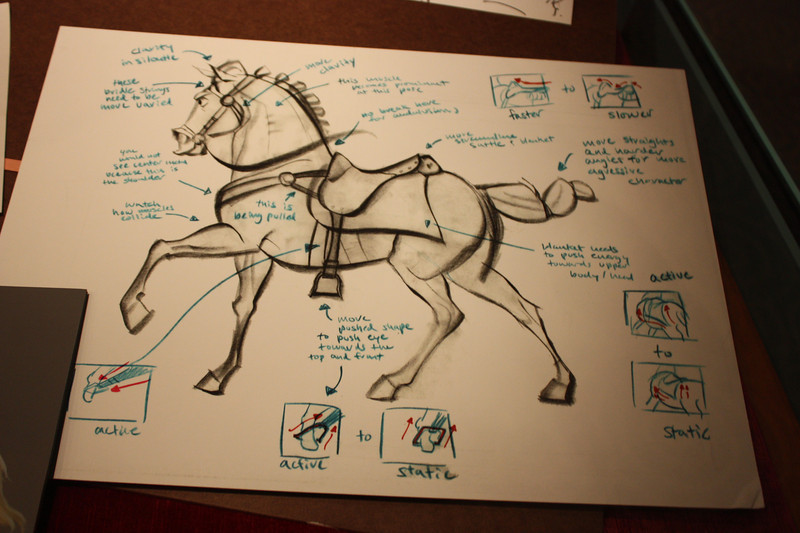 clarity
in silouette
these
bridle strings
need to be
more varied
more
clarity
this muscle
becomes prominent
at this pose
no break here
for subdivision
faster
to
slower
more
streamline
blanket
more straights
and harder
angles for more
aglessive
character
you
would not
see center
because this is
the shoulder
watch
how muscles
collide
this is
being pulled
blanket needs
to push energy
towards upper
body/head
more
pushed shape
to push eye
towards the
top and front
active
to
static
active
active
to
static